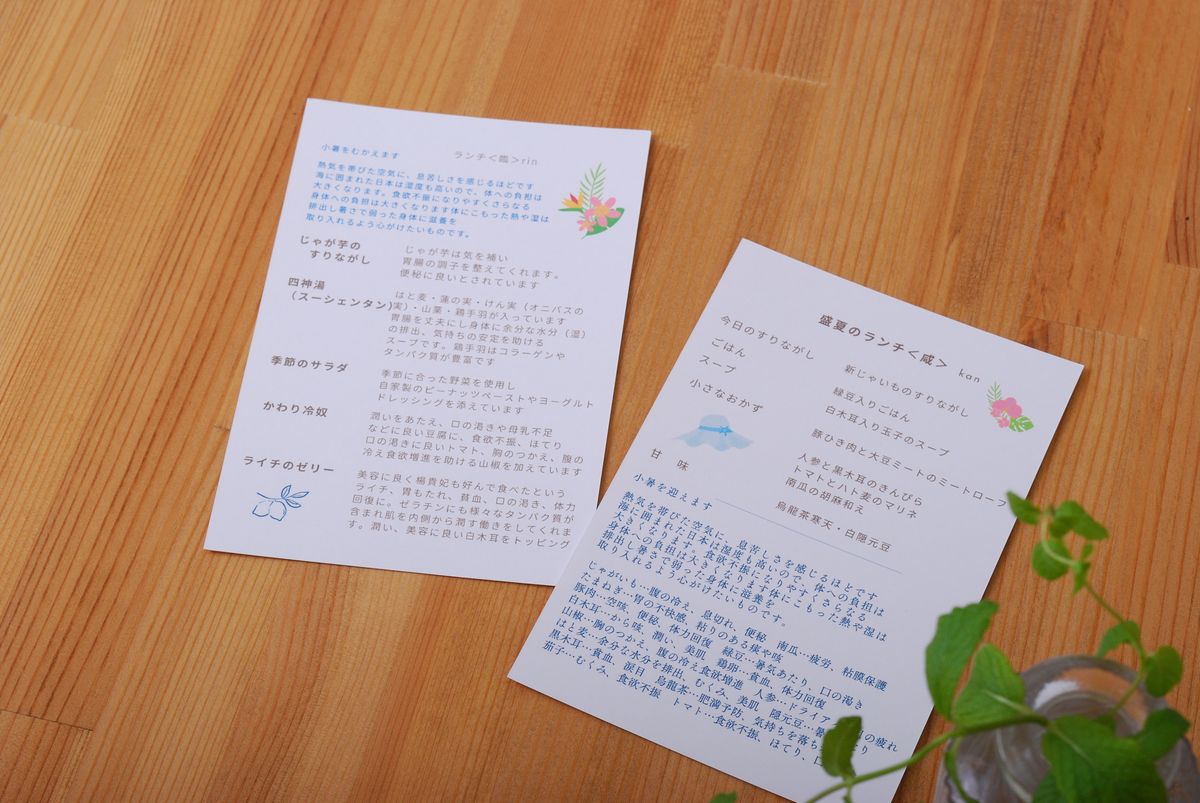 小暑をむかえます
ランチ＜臨＞rin
熱気を帯びた空気に、息苦しさを感じるほどです
海に囲まれた日本は湿度も高いので、体への負担は
大きくなります。食欲不振になりやすくさらなる
身体への負担は大きくなります体にこもった熱や湿は
排出し暑さで弱った身体に滋養を
取り入れるよう心がけたいものです。
じゃが芋の
すりながし
じゃが芋は気を補い
胃腸の調子を整えてくれます。
便秘に良いとされています
四神湯
（スーシェンタン）
はと麦・蓮の実・けん実（オニバスの
実）・山薬・鶏手羽が入っています
胃腸を丈夫にし身体に余分な水分（湿）
の排出、気持ちの安定を助ける
スープです。鶏手羽はコラーゲンや
タンパク質が豊富です
季節のサラダ
季節に合った野菜を使用し
自家製のピーナッツペーストやヨーグルト
ドレッシングを添えています
かわり冷奴
潤いをあたえ、口の渇きや母乳不足
などに良い豆腐に、食欲不振、ほてり
口の渇きに良いトマト、胸のつかえ、腹の
冷え食欲増進を助ける山椒を加えています
ライチのゼリー
美容に良く楊貴妃も好んで食べたという
ライチ、胃もたれ、貧血、口の渇き、体力
回復に。ゼラチンにも様々なタンパク質が
含まれ肌を内側から潤す働きをしてくれま
す。潤い、美容に良い白木耳をトッピング
盛夏のランチ＜咸＞ kan
今日のすりながし
新じゃいものすりながし
ごはん
緑豆入りごはん
スープ
白木耳入り玉子のスープ
小さなおかず
豚ひき肉と大豆ミートのミートローフ
人参と黒木耳のきんぴら
トマトとハト麦のマリネ
南瓜の胡麻和え
甘 味
烏龍茶寒天・白隠元豆
小暑を迎えます
熱気を帯びた空気に、息苦しさを感じるほどです
海に囲まれた日本は湿度も高いので、体への負担は
大きくなります。食欲不振になりやすくさらなる
身体への負担は大きくなります体にこもった熱や湿は
排出し暑さで弱った身体に滋養を
取り入れるよう心がけたいものです。
じゃがいも…腹の冷え、息切れ、便秘 南瓜…疲労、粘膜保護
たまねぎ…胃の不快感、粘りのある痰や咳
豚肉…空咳、便秘、体力回復 緑豆…暑気あたり、口の渇き
白木耳…から咳、潤い、美肌 鶏卵…貧血、体力回復
山椒…胸のつかえ、腹の冷え食欲増進 人参…ドライア の疲れ
はと麦…余分な水分を排出、むくみ、美肌 隠元豆…暑
黒木耳…貧血、涙目 烏龍茶…肥満予防、気持ちを落ち
茄子…むくみ、食欲不振 トマト…食欲不振、ほてり、口